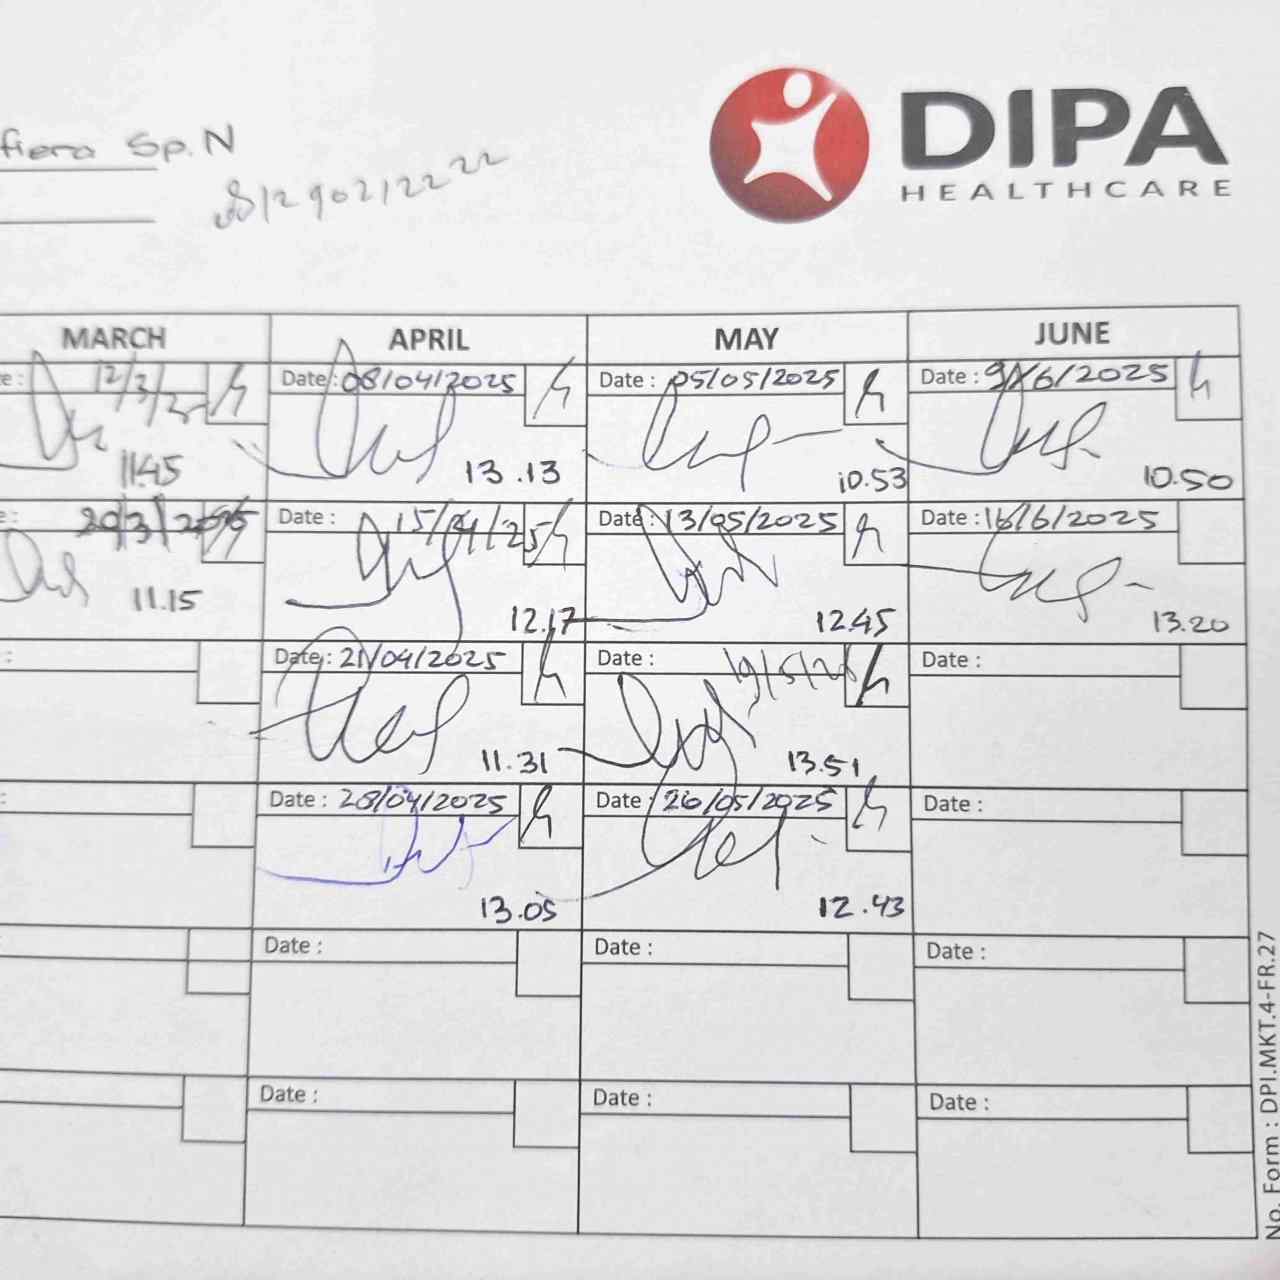 DIPA
HEALTHCARE
fiera Sp.N
MARCH APRIL MAY JUNE
12/3/25 Date: 08/04/2025 Date: 05/05/2025 Date: 9/6/2025
11.45 13.13 10.53 10.50
20/3/2025 Date: 15/04/25 Date: 13/05/2025 Date: 16/6/2025
11.15 12.17 12.45 13.20
Date: 21/04/2025 Date: 19/5/25 Date:
11.31 13.51
Date: 28/04/2025 Date: 26/05/2025 Date:
13.05 12.43
Date: Date: Date:
Date: Date: Date:
No. Form : DPI.MKT.4-FR.27